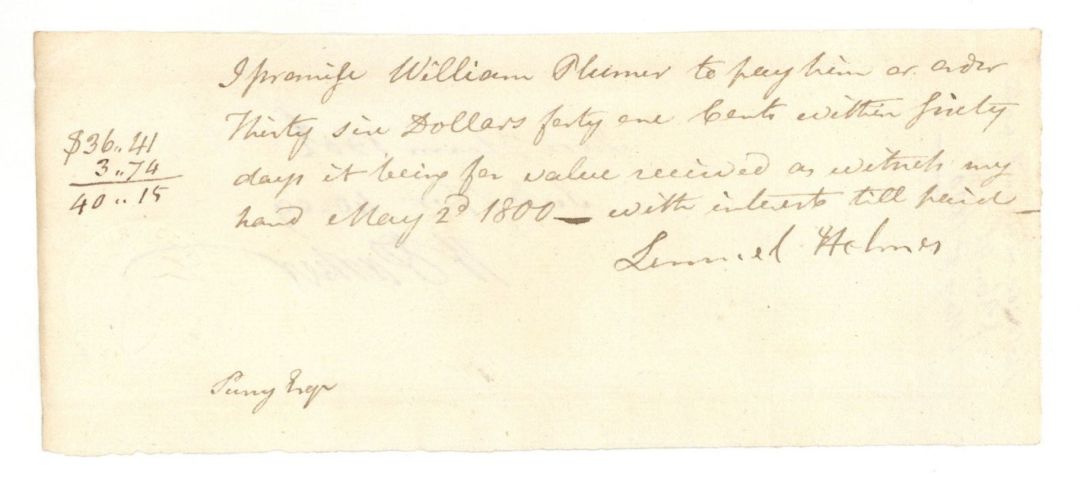 I promise William Plumer to pay him or order
Thirty six Dollars forty one Cents within sixty
days it being for value received as witness my
hand May 2d 1800 — with interest till paid —
Lemuel Holmes
$36..41
3..74
40..15
Esqr